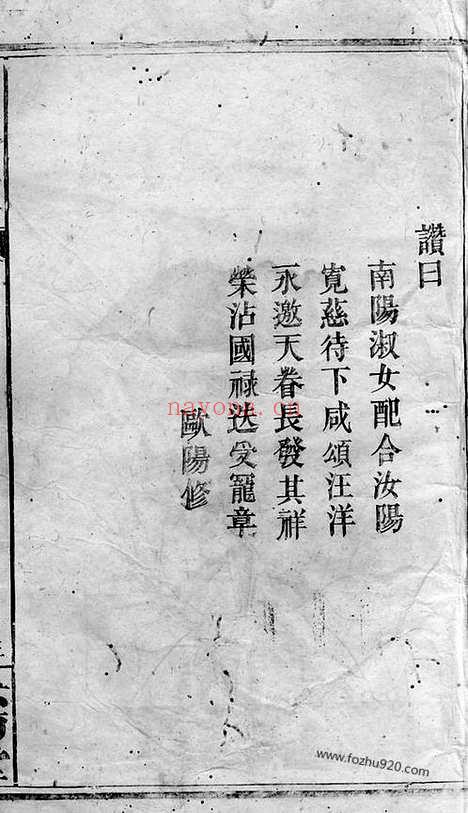 讚曰
南陽淑女配合汝陽
寬慈待下咸頌汪洋
永邀天眷長發其祥
榮沾國祿迭受寵章
歐陽修
nayona.cn
www.fozhu920.com